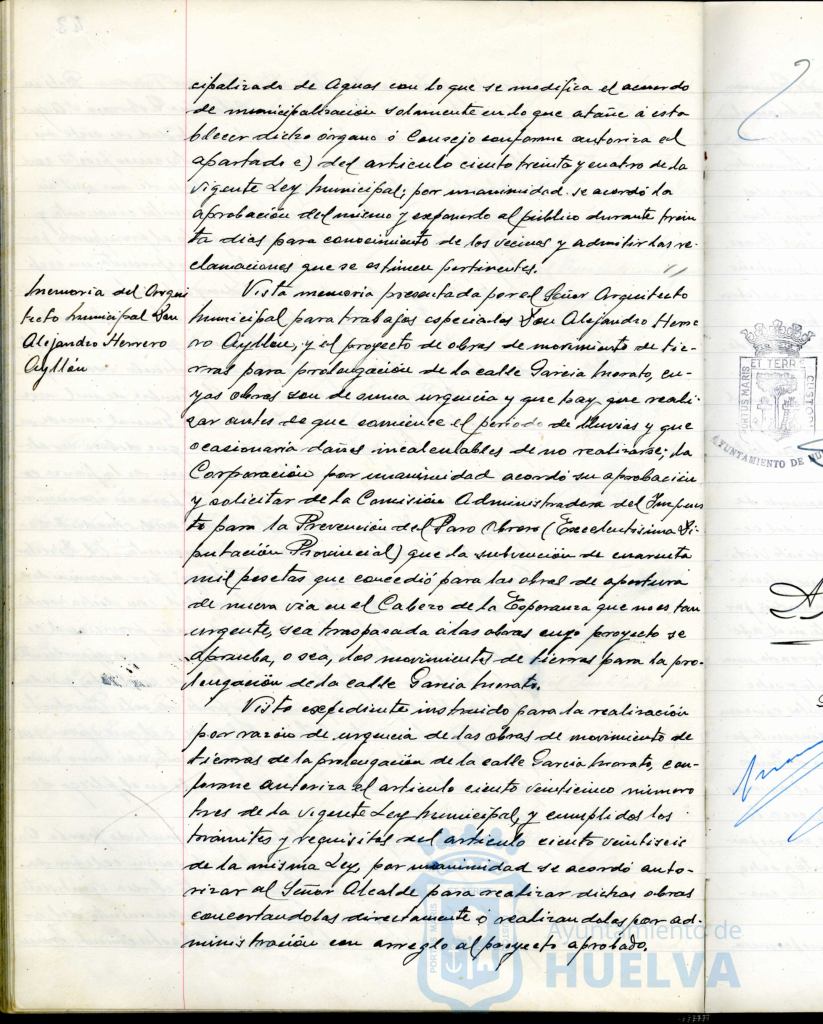 cipalizado de Aguas con lo que se modifica el acuerdo
de municipalización solamente en lo que atañe á esta
blecer dicho órgano ó Consejo conforme autoriza el
apartado e) del articulo ciento treinta y cuatro de la
vigente Ley Municipal; por unanimidad se acordó la
aprobación del mismo y exponerlo al público durante trein
ta dias para conocimiento de los vecinos y admitir las re-
clamaciones que se estimen pertinentes.
Memoria del Arqui
tecto Municipal Don
Alejandro Herrero
Ayllón
Vista memoria presentada por el Señor Arquitecto
Municipal para trabajos especiales Don Alejandro Herre
ro Ayllón, y el proyecto de obras de movimiento de tie-
rras para prolongación de la calle Garcia Morato, cu-
yas obras son de suma urgencia y que hay que reali-
zar antes de que comience el período de lluvias y que
ocasionaría daños incalculables de no realizarse; la
Corporación por unanimidad acordó su aprobación
y solicitar de la Comisión Administradora del Impues
to para la Prevención del Paro Obrero (Excelentísima Di-
putación Provincial) que la subvención de cuarenta
mil pesetas que concedió para las obras de apertura
de nueva via en el Cabezo de la Esperanza que no es tan
urgente, sea traspasada a las obras cuyo proyecto se
aprueba, o sea, los movimientos de tierras para la pro-
longación de la calle Garcia Morato.
Visto expediente instruido para la realización
por razón de urgencia de las obras de movimiento de
tierras de la prolongación de la calle Garcia Morato, con-
forme autoriza el articulo ciento veinticinco número
tres de la vigente Ley Municipal y cumplidos los
trámites y requisitos del articulo ciento veintiseis
de la misma Ley, por unanimidad se acordó auto-
rizar al Señor Alcalde para realizar dichas obras
concertandolas directamente ó realizandolas por ad-
ministración con arreglo al proyecto aprobado.
PORTUS MARIS
ET TERRÆ
CUSTODI
AYUNTAMIENTO DE HU
Ayuntamiento de
HUELVA